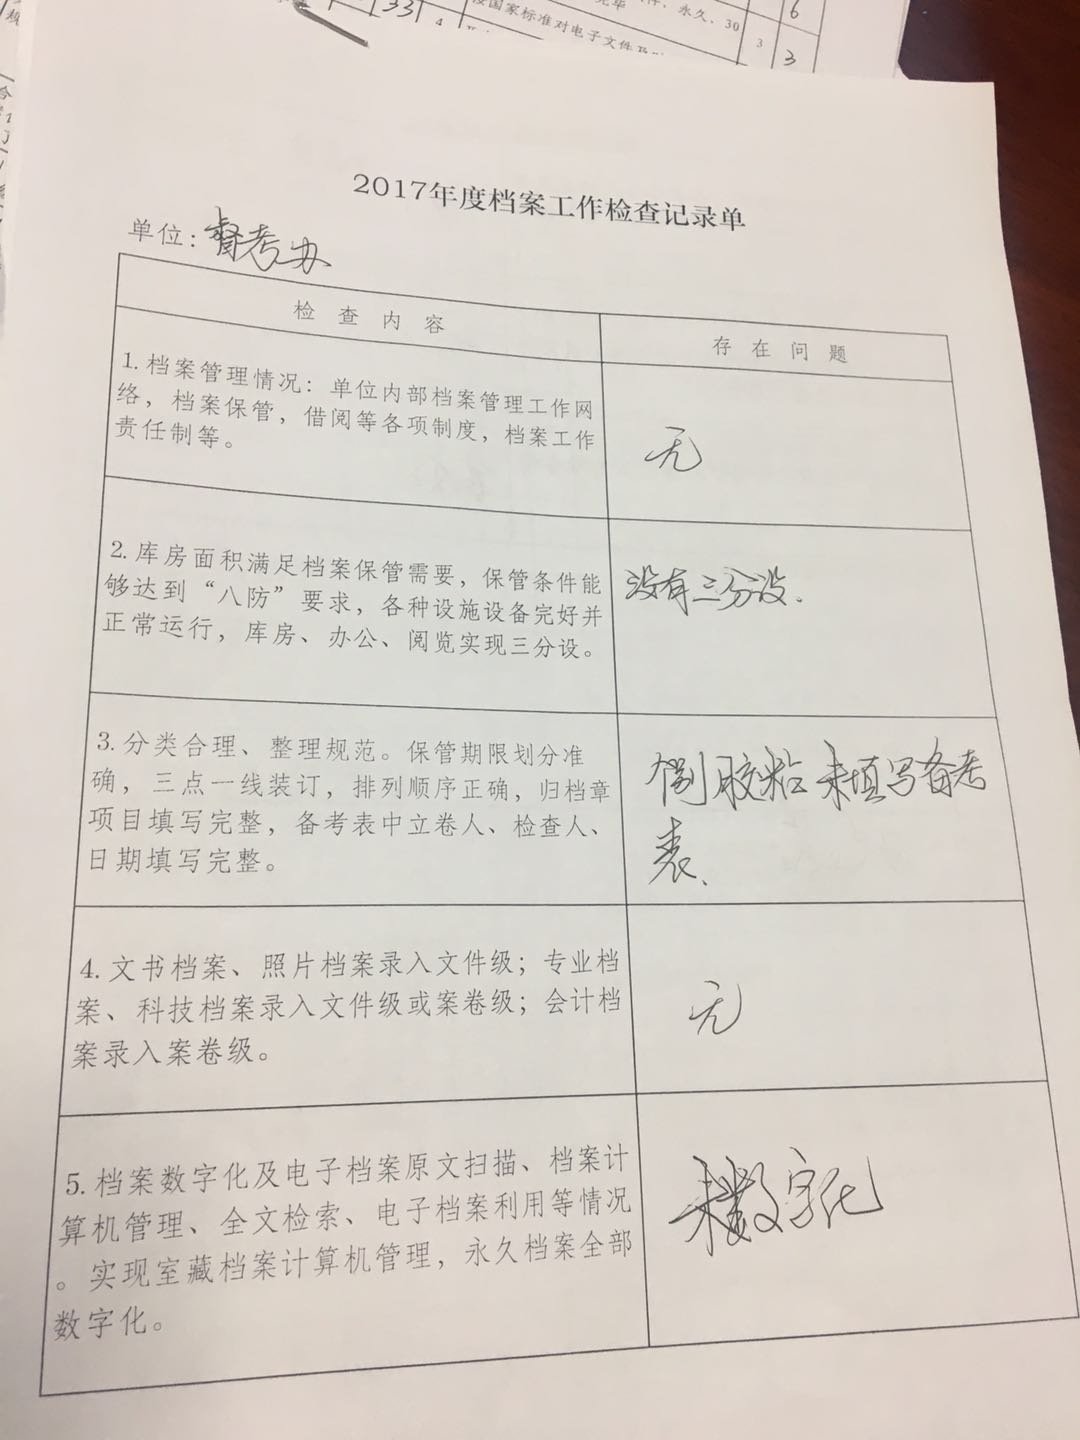 6
33
4
按国家标准对电子文件及
永久、30
3
3
2017年度档案工作检查记录单
单位：督考办
检查内容
存在问题
1.档案管理情况：单位内部档案管理工作网
络，档案保管，借阅等各项制度，档案工作
责任制等。
无
2.库房面积满足档案保管需要，保管条件能
够达到“八防”要求，各种设施设备完好并
正常运行，库房、办公、阅览实现三分设。
没有三分设.
3.分类合理、整理规范。保管期限划分准
确，三点一线装订，排列顺序正确，归档章
项目填写完整，备考表中立卷人、检查人、
日期填写完整。
个别胶粘 未填写备考
表、
4.文书档案、照片档案录入文件级；专业档
案、科技档案录入文件级或案卷级；会计档
案录入案卷级。
无
5.档案数字化及电子档案原文扫描、档案计
算机管理、全文检索、电子档案利用等情况
。实现室藏档案计算机管理，永久档案全部
数字化。
未数字化